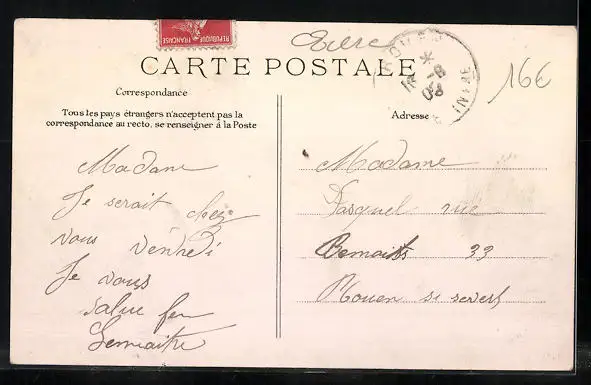 REPUBLIQUE FRANÇAISE
CARTE POSTALE
16€
Correspondance
Tous les pays étrangers n'acceptent pas la
correspondance au recto, se renseigner à la Poste
Adresse
Madame
Je serait chez
vous
Je vous
salue
Lemaitre
Madame
Pasquel rue
33
Rouen